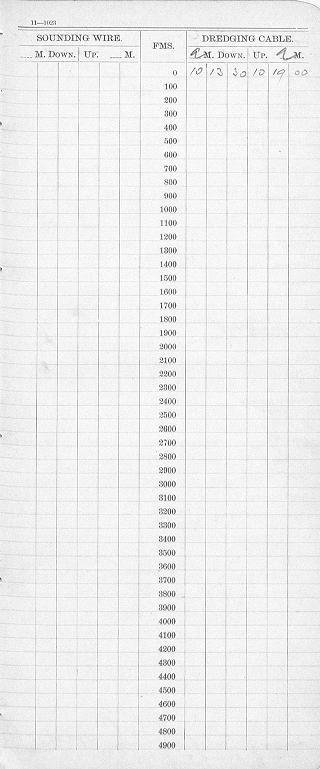 11—1023
SOUNDING WIRE. FMS. DREDGING CABLE.
M. DOWN. UP. M. a M. DOWN. UP. a M.
0 10 13 30 10 19 00
100
200
300
400
500
600
700
800
900
1000
1100
1200
1300
1400
1500
1600
1700
1800
1900
2000
2100
2200
2300
2400
2500
2600
2700
2800
2900
3000
3100
3200
3300
3400
3500
3600
3700
3800
3900
4000
4100
4200
4300
4400
4500
4600
4700
4800
4900